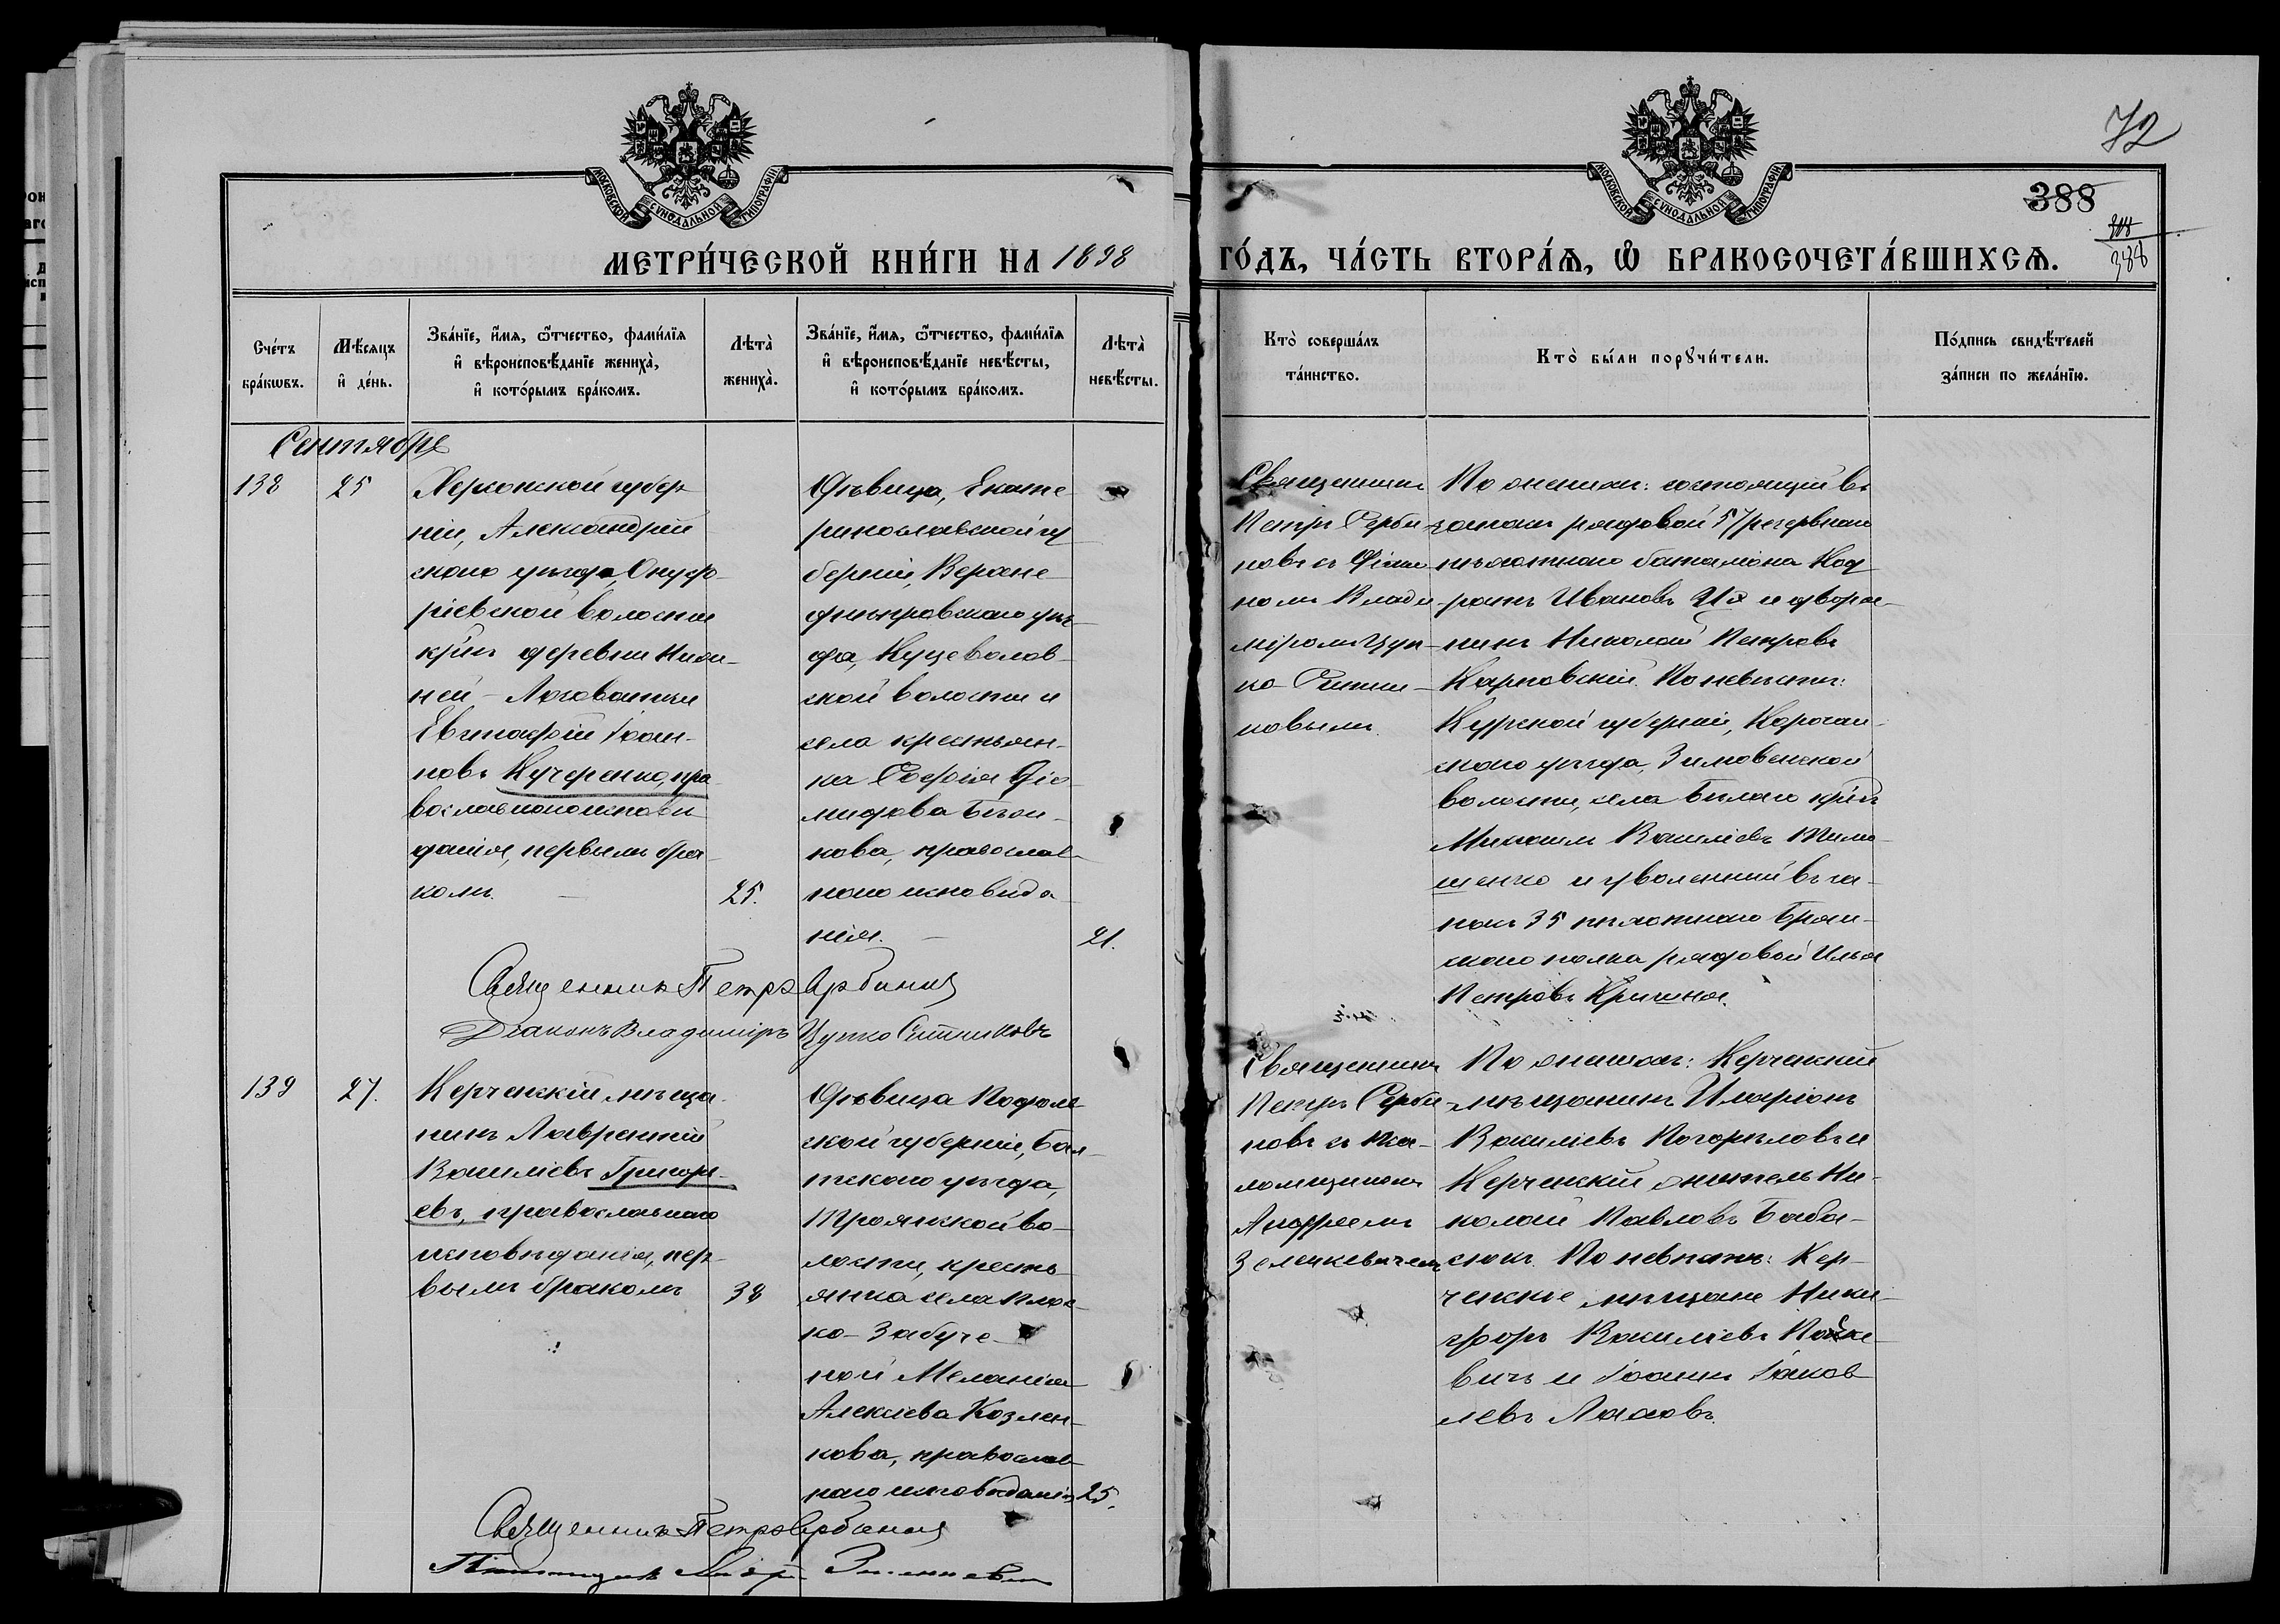 72
388
388
МЕТРИ́ЧЕСКОЙ КНИ́ГИ НА 1898
ГО́ДЪ, ЧА́СТЬ ВТОРА́Я, Ѿ БРАКОСОЧЕТА́ВШИХСЯ.
МОСКОВСКОЙ СѴНОДАЛЬНОЙ ТИПОГРАФІИ
МОСКОВСКОЙ СѴНОДАЛЬНОЙ ТИПОГРАФІИ
Сче́тъ бра́кωвъ.
Мѣ́сяцъ и҆ де́нь.
Зва́нїе, и҆́мя, ѻ҆́тчество, фами́лїя и҆ вѣроисповѣ́данїе жениха̀, и҆ кото́рымъ бра́комъ.
Лѣта̀ жениха̀.
Зва́нїе, и҆́мя, ѻ҆́тчество, фами́лїя и҆ вѣроисповѣ́данїе невѣ́сты, и҆ кото́рымъ бра́комъ.
Лѣта̀ невѣ́сты.
Кто̀ соверша́лъ та́инство.
Кто̀ бы́ли порꙋчи́тели.
По́дпись свидѣ́телей за́писи по жела́нїю.
Сентябрь
138
25
Херсонской губер-
ніи, Александрій
скаго уѣзда, Онуф-
ріевской волости
кр-нъ деревни Ниж-
ней-Лозоватки
Евгнафій Іоан-
новъ Кучеренко, пра-
вославнаго исповѣ-
данія, первымъ бра-
комъ.
25.
Дѣвица, Екате-
ринославской гу
берніи, Верхне-
днѣпровскаго уѣз-
да, Куцеволов-
ской волости и
села крестьян-
ка Софія Діо-
мидова Бѣли-
кова, православ-
наго исповѣда
нія.
21.
Священникъ
Петръ Серби-
новъ съ Діако-
номъ Влади-
міромъ Цуп-
ко-Ситни-
ковымъ.
По женихѣ: состоящій въ
запасѣ рядовой 57 резервнаго
пѣхотнаго баталіона Код-
ратъ Ивановъ Ихъ и дворя-
нинъ Николай Петровъ
Карповскій. По невѣстѣ:
Курской губерніи, Корочан-
скаго уѣзда, Зимовенской
волости, села Бѣлаго кр-нъ
Михаилъ Василіевъ Тимо-
шенко и уволенный въ за-
пасъ 35 пѣхотнаго Брян-
скаго полка рядовой Илья
Петровъ Кришня.
Священникъ Петръ Сербиновъ
Діаконъ Владиміръ Цупко Ситниковъ
139
27.
Керченскій мѣща-
нинъ Лаврентій
Василіевъ Григорь-
евъ, православнаго
исповѣданія, пер-
вымъ бракомъ
38
Дѣвица Подоль-
ской губерніи, Бал-
тскаго уѣзда,
Троянской во-
лости, кресть-
янка села Плос-
ко-Забуче-
ной Меланія
Алексіева Козлен-
кова, православ-
наго исповѣданія
25.
Священникъ
Петръ Серби-
новъ съ Пса-
ломщикомъ
Андреемъ
Зеленкевичемъ
По женихѣ: Керченскій
мѣщанинъ Иларіонъ
Василіевъ Погорѣловъ и
Керченскій житель Ни-
колай Павловъ Баба-
сюкъ. По невѣстѣ: Кер-
ченскіе мѣщане Ники-
форъ Василіевъ
вичъ и Іоаннъ Іаков
левъ Ляховъ.
Священникъ Петръ Сербиновъ